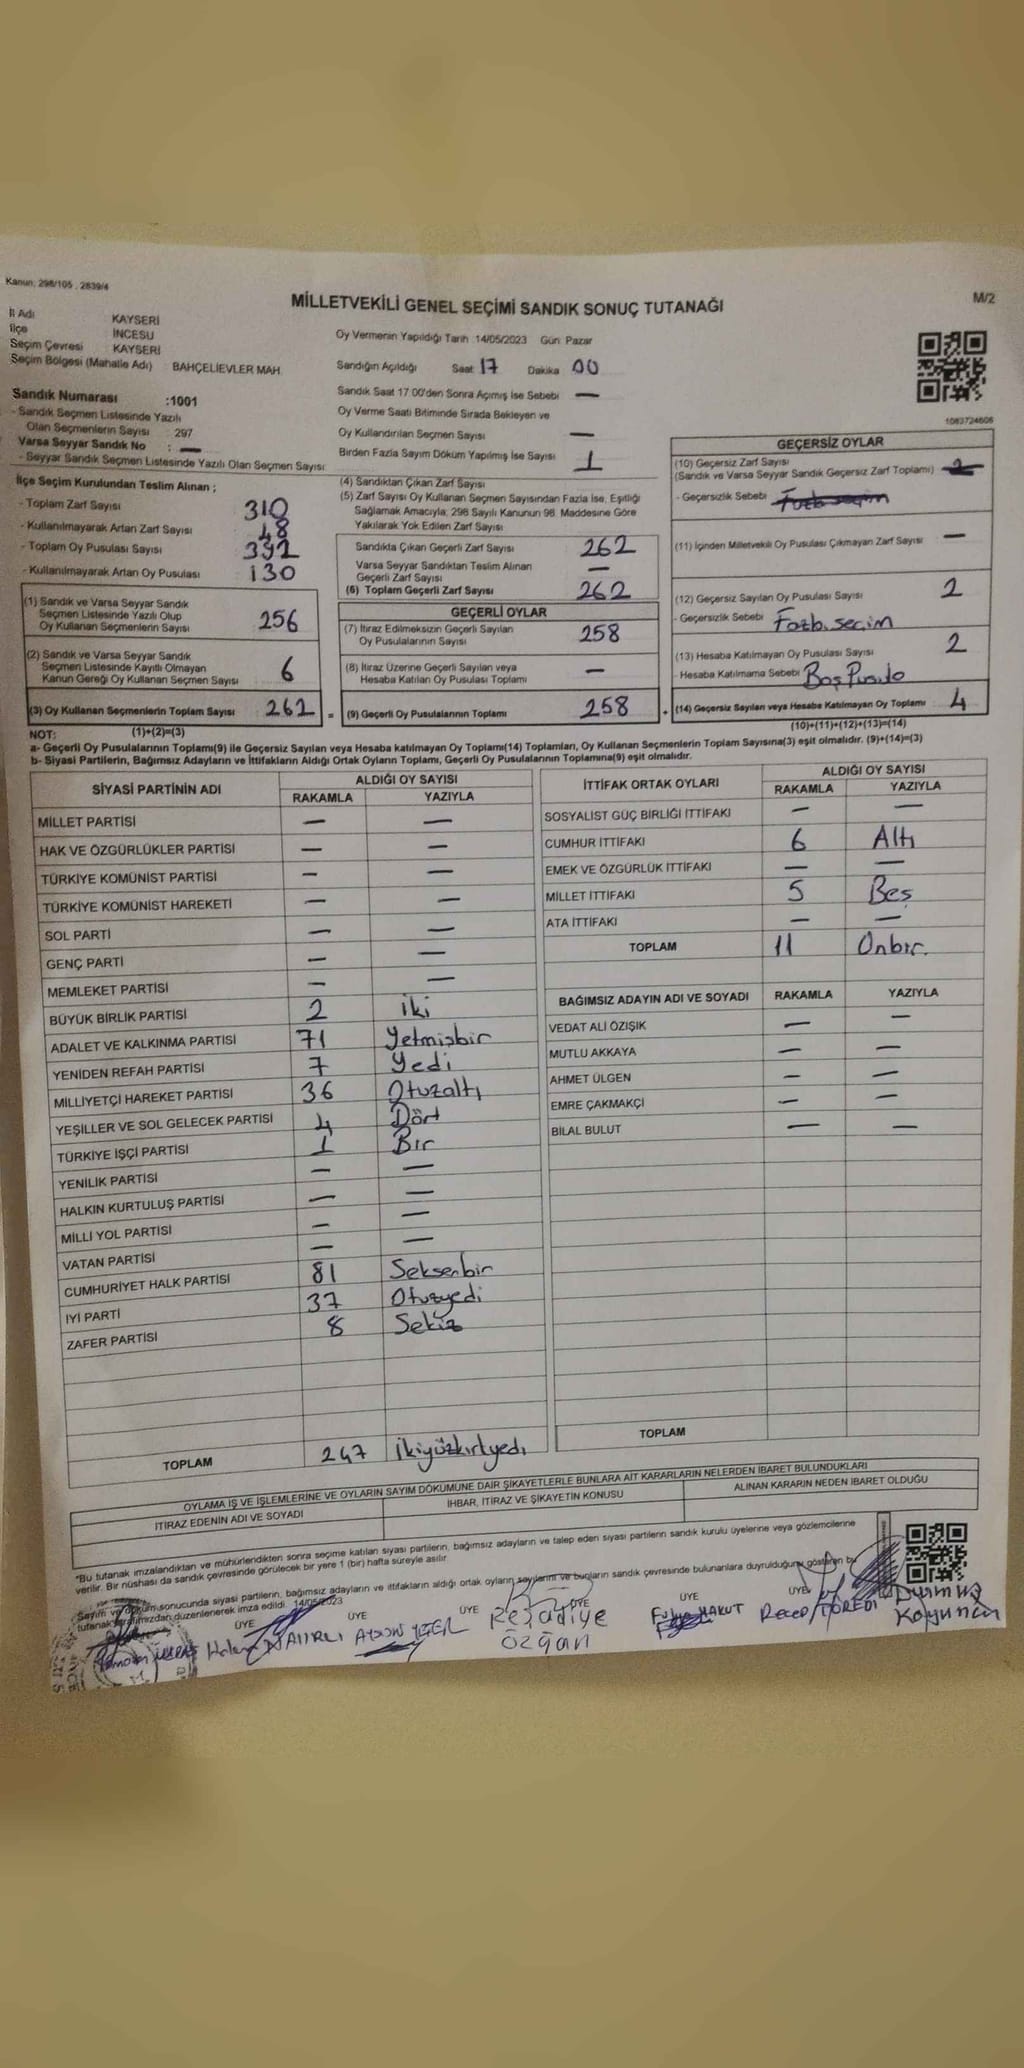 Kanun: 298/105 , 2839/4
MİLLETVEKİLİ GENEL SEÇİMİ SANDIK SONUÇ TUTANAĞI
M/2
İl Adı KAYSERİ
İlçe İNCESU
Seçim Çevresi KAYSERİ
Seçim Bölgesi (Mahalle Adı) BAHÇELİEVLER MAH.
Oy Vermenin Yapıldığı Tarih :14/05/2023 Gün: Pazar
Sandığın Açıldığı Saat 17 Dakika 00
Sandık Numarası :1001
- Sandık Seçmen Listesinde Yazılı
Olan Seçmenlerin Sayısı : 297
Varsa Seyyar Sandık No : —
- Seyyar Sandık Seçmen Listesinde Yazılı Olan Seçmen Sayısı:
Sandık Saat 17.00'den Sonra Açımış İse Sebebi —
Oy Verme Saati Bitiminde Sırada Bekleyen ve
Oy Kullandırılan Seçmen Sayısı —
Birden Fazla Sayım Döküm Yapılmış İse Sayısı 1
1083724606
İlçe Seçim Kurulundan Teslim Alınan ;
- Toplam Zarf Sayısı 310
- Kullanılmayarak Artan Zarf Sayısı 48
- Toplam Oy Pusulası Sayısı 392
- Kullanılmayarak Artan Oy Pusulası 130
(1) Sandık ve Varsa Seyyar Sandık
Seçmen Listesinde Yazılı Olup
Oy Kullanan Seçmenlerin Sayısı 256
(2) Sandık ve Varsa Seyyar Sandık
Seçmen Listesinde Kayıtlı Olmayan
Kanun Gereği Oy Kullanan Seçmen Sayısı 6
(3) Oy Kullanan Seçmenlerin Toplam Sayısı 262 =
(1)+(2)=(3)
(4) Sandıktan Çıkan Zarf Sayısı
(5) Zarf Sayısı Oy Kullanan Seçmen Sayısından Fazla İse, Eşitliği
Sağlamak Amacıyla; 298 Sayılı Kanunun 98. Maddesine Göre
Yakılarak Yok Edilen Zarf Sayısı
Sandıkta Çıkan Geçerli Zarf Sayısı 262
Varsa Seyyar Sandıktan Teslim Alınan
Geçerli Zarf Sayısı —
(6) Toplam Geçerli Zarf Sayısı 262
GEÇERLİ OYLAR
(7) İtiraz Edilmeksizin Geçerli Sayılan
Oy Pusulalarının Sayısı 258
(8) İtiraz Üzerine Geçerli Sayılan veya
Hesaba Katılan Oy Pusulası Toplamı —
(9) Geçerli Oy Pusulalarının Toplamı 258 +
GEÇERSİZ OYLAR
(10) Geçersiz Zarf Sayısı
(Sandık ve Varsa Seyyar Sandık Geçersiz Zarf Toplamı)
- Geçersizlik Sebebi
(11) İçinden Milletvekili Oy Pusulası Çıkmayan Zarf Sayısı —
(12) Geçersiz Sayılan Oy Pusulası Sayısı 2
- Geçersizlik Sebebi Fazla seçim
(13) Hesaba Katılmayan Oy Pusulası Sayısı 2
- Hesaba Katılmama Sebebi Boş Pusula
(14) Geçersiz Sayılan veya Hesaba Katılmayan Oy Toplamı 4
(10)+(11)+(12)+(13)=(14)
NOT:
a- Geçerli Oy Pusulalarının Toplamı(9) ile Geçersiz Sayılan veya Hesaba katılmayan Oy Toplamı(14) Toplamları, Oy Kullanan Seçmenlerin Toplam Sayısına(3) eşit olmalıdır. (9)+(14)=(3)
b- Siyasi Partilerin, Bağımsız Adayların ve İttifakların Aldığı Ortak Oyların Toplamı, Geçerli Oy Pusulalarının Toplamına(9) eşit olmalıdır.
SİYASİ PARTİNİN ADI ALDIĞI OY SAYISI
RAKAMLA YAZIYLA
MİLLET PARTİSİ — —
HAK VE ÖZGÜRLÜKLER PARTİSİ — —
TÜRKİYE KOMÜNİST PARTİSİ — —
TÜRKİYE KOMÜNİST HAREKETİ — —
SOL PARTİ — —
GENÇ PARTİ — —
MEMLEKET PARTİSİ — —
BÜYÜK BİRLİK PARTİSİ 2 İki
ADALET VE KALKINMA PARTİSİ 71 Yetmişbir
YENİDEN REFAH PARTİSİ 7 Yedi
MİLLİYETÇİ HAREKET PARTİSİ 36 Otuzaltı
YEŞİLLER VE SOL GELECEK PARTİSİ 4 Dört
TÜRKİYE İŞÇİ PARTİSİ 1 Bir
YENİLİK PARTİSİ — —
HALKIN KURTULUŞ PARTİSİ — —
MİLLİ YOL PARTİSİ — —
VATAN PARTİSİ — —
CUMHURİYET HALK PARTİSİ 81 Seksenbir
İYİ PARTİ 37 Otuzyedi
ZAFER PARTİSİ 8 Sekiz
TOPLAM 247 İkiyüzkırkyedi
İTTİFAK ORTAK OYLARI ALDIĞI OY SAYISI
RAKAMLA YAZIYLA
SOSYALİST GÜÇ BİRLİĞİ İTTİFAKI — —
CUMHUR İTTİFAKI 6 Altı
EMEK VE ÖZGÜRLÜK İTTİFAKI — —
MİLLET İTTİFAKI 5 Beş
ATA İTTİFAKI — —
TOPLAM 11 Onbir.
BAĞIMSIZ ADAYIN ADI VE SOYADI RAKAMLA YAZIYLA
VEDAT ALİ ÖZIŞIK — —
MUTLU AKKAYA — —
AHMET ÜLGEN — —
EMRE ÇAKMAKÇİ — —
BİLAL BULUT — —
TOPLAM
OYLAMA İŞ VE İŞLEMLERİNE VE OYLARIN SAYIM DÖKÜMÜNE DAİR ŞİKAYETLERLE BUNLARA AİT KARARLARIN NELERDEN İBARET BULUNDUKLARI
İTİRAZ EDENİN ADI VE SOYADI İHBAR, İTİRAZ VE ŞİKAYETİN KONUSU ALINAN KARARIN NEDEN İBARET OLDUĞU
*Bu tutanak imzalandıktan ve mühürlendikten sonra seçime katılan siyasi partilerin, bağımsız adayların ve talep eden siyasi partilerin sandık kurulu üyelerine veya gözlemcilerine
verilir. Bir nüshası da sandık çevresinde görülecek bir yere 1 (bir) hafta süreyle asılır.
Sayım ve döküm sonucunda siyasi partilerin, bağımsız adayların ve ittifakların aldığı ortak oyların sayılarını ve bunların sandık çevresinde bulunanlara duyrulduğunu gösteren bu
tutanak tarafımızdan düzenlenerek imza edildi. 14/05/2023
ÜYE ÜYE ÜYE ÜYE ÜYE ÜYE
Reşadiye
Özgan
Recep TÖREDİ
Durmuş
Koyuncu